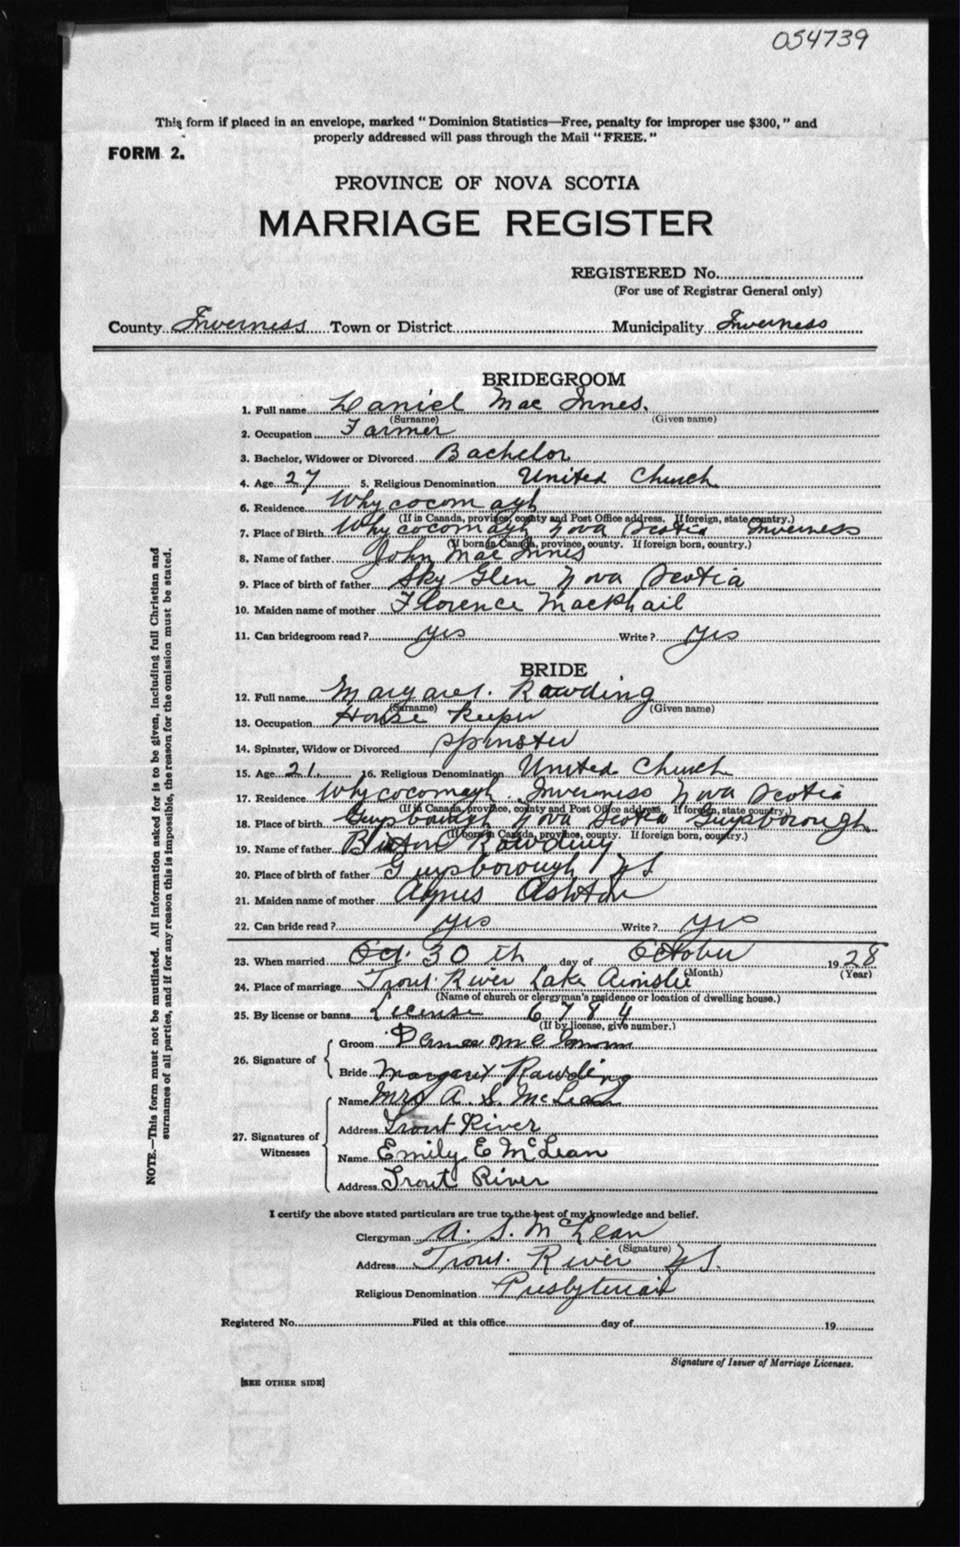 054739
This form if placed in an envelope, marked "Dominion Statistics—Free, penalty for improper use $300," and
properly addressed will pass through the Mail "FREE."
FORM 2.
PROVINCE OF NOVA SCOTIA
MARRIAGE REGISTER
REGISTERED No.
(For use of Registrar General only)
County Inverness Town or District Municipality Inverness
BRIDEGROOM
1. Full name Daniel Mac Innes.
(Surname) (Given name)
2. Occupation Farmer
3. Bachelor, Widower or Divorced Bachelor
4. Age 27 5. Religious Denomination United Church
6. Residence Whycocomagh
(If in Canada, province, county and Post Office address. If foreign, state country.)
7. Place of Birth Whycocomagh Nova Scotia Inverness
(If born in Canada, province, county. If foreign born, country.)
8. Name of father John Mac Innes
9. Place of birth of father Sky Glen Nova Scotia
10. Maiden name of mother Florence MacPhail
11. Can bridegroom read? yes Write? yes
BRIDE
12. Full name Margaret. Rawding
(Surname) (Given name)
13. Occupation House Keeper
14. Spinster, Widow or Divorced Spinster
15. Age 21. 16. Religious Denomination United Church
17. Residence Whycocomagh Inverness Nova Scotia
(If in Canada, province, county and Post Office address. If foreign, state country.)
18. Place of birth Guysborough Nova Scotia Guysborough
(If born in Canada, province, county. If foreign born, country.)
19. Name of father Rawding
20. Place of birth of father Guysborough N S
21. Maiden name of mother Agnes Ashton
22. Can bride read? yes Write? yes
23. When married Oct. 30 th day of October 1928
(Month) (Year)
24. Place of marriage Trout River Lake Ainslie
(Name of church or clergyman's residence or location of dwelling house.)
25. By license or banns License 6784
(If by license, give number.)
26. Signature of
Groom
Bride Margaret Rawding
27. Signatures of Witnesses
Name Mrs A. S. McLean
Address Trout River
Name Emily E McLean
Address Trout River
I certify the above stated particulars are true to the best of my knowledge and belief.
Clergyman A. S. McLean
(Signature)
Address Trout. River N S.
Religious Denomination Presbyterian
Registered No. Filed at this office day of 19
Signature of Issuer of Marriage Licenses.
[SEE OTHER SIDE]
NOTE.—This form must not be mutilated. All information asked for is to be given, including full Christian and
surnames of all parties, and if for any reason this is impossible, the reason for the omission must be stated.